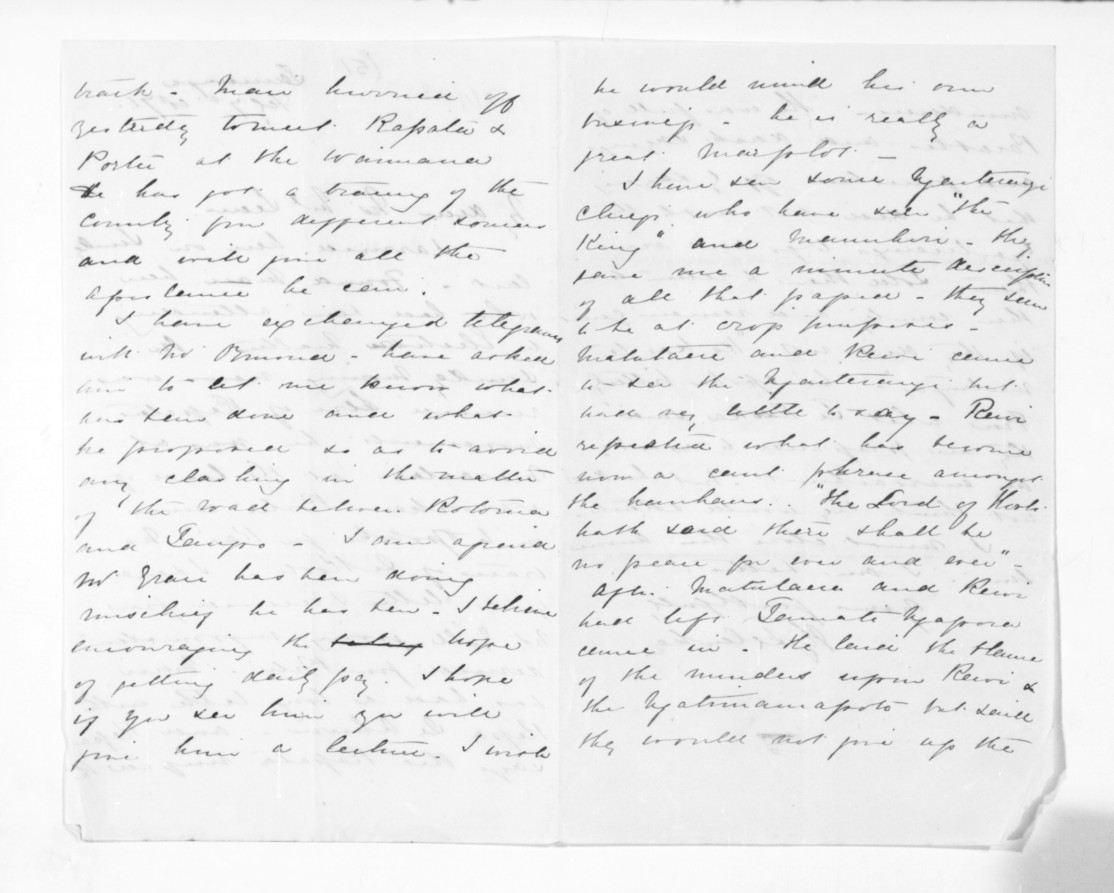 track - Mair hurried off
yesterday to meet Ropata &
Porter at the Waimana
he has got a tracing of the
country from different sources
and will give all the
assistance he can.
I have exchanged telegrams
with Mr Ormond - have asked
him to let me know what
has been done and what
he proposed so as to avoid
any clashing in the matter
of the road between Rotorua
and Taupo - I am afraid
Mr Grace has been doing
mischief he has been - I believe
encouraging the hope
of getting daily pay. I hope
if you see him you will
give him a lecture. I wish
he would mind his own
business - he is really a
great marplot -
I have seen some Ngaiterangi
chiefs who have seen "the
King" and Manuhiri - they
gave me a minute description
of all that passed - they seem
to be at cross purposes -
Matutaera and Rewi came
to see the Ngaiterangi but
had very little to say - Rewi
repeated what has become
now a cant phrase amongst
the hauhaus.. "The Lord of Hosts
hath said there shall be
no peace for ever and ever" -
After Matutaera and Rewi
had left Tamati Ngapora
came in - He laid the blame
of the murders upon Rewi &
the Ngatimaniapoto but said
they would not give up the